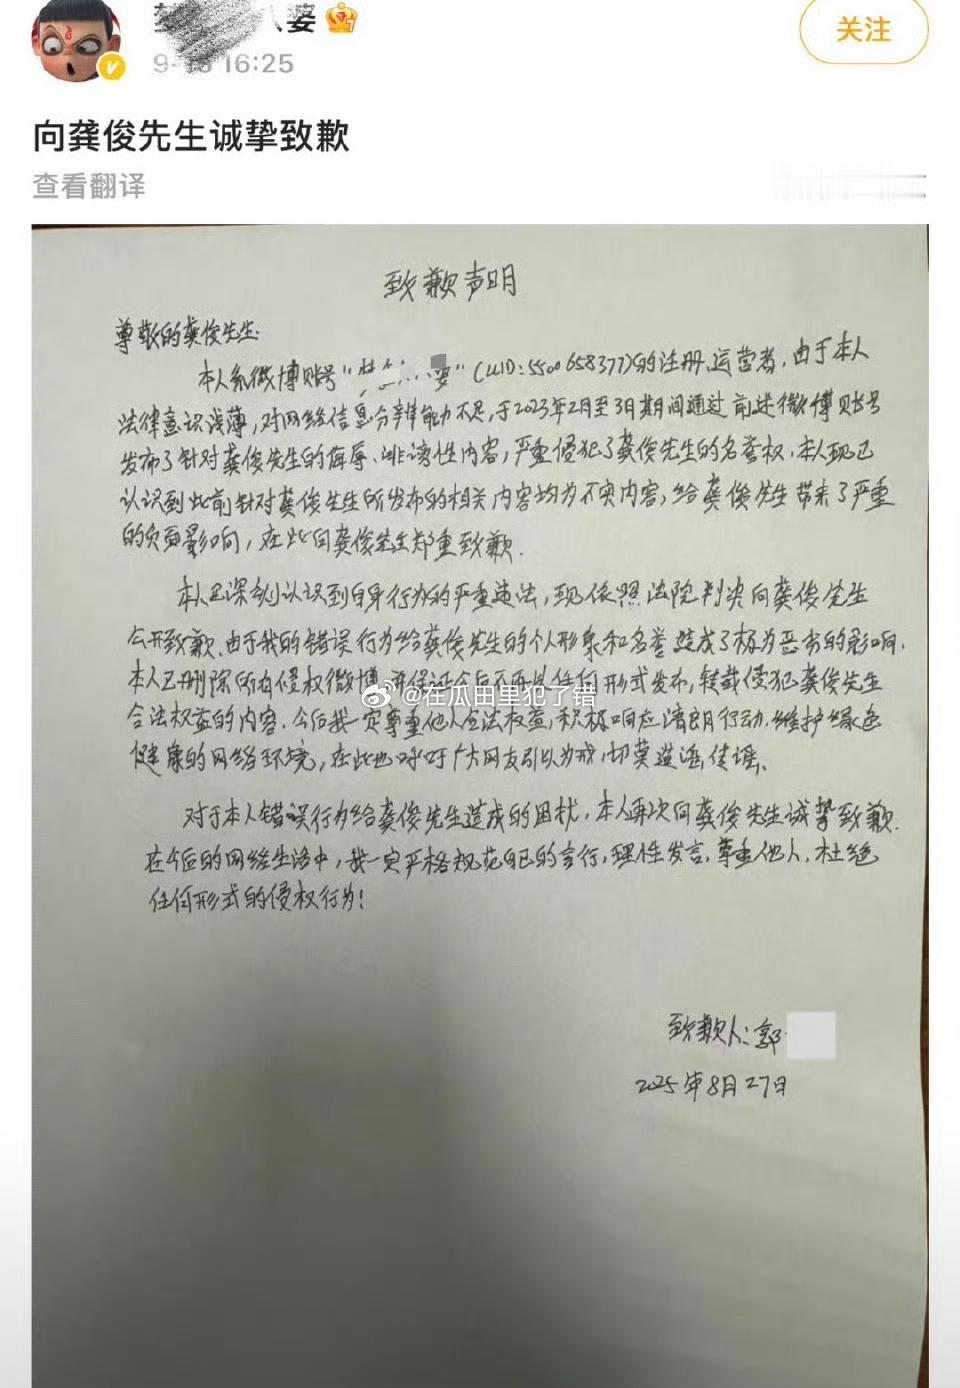 八婆
关注
16:25
向龚俊先生诚挚致歉
查看翻译
致歉声明
尊敬的龚俊先生：
本人系微博账号“ 婆”（UID:5500658377）的注册、运营者，由于本人
法律意识浅薄，对网络信息分辨能力不足，于2023年2月至3月期间通过前述微博账号
发布了针对龚俊先生的侮辱、诽谤性内容，严重侵犯了龚俊先生的名誉权，本人现已
认识到此前针对龚俊先生所发布的相关内容均为不实内容，给龚俊先生带来了严重
的负面影响，在此向龚俊先生郑重致歉．
本人已深刻认识到自身行为的严重违法，现依照法院判决向龚俊先生
公开致歉．由于我的错误行为给龚俊先生的个人形象和名誉造成了极为恶劣的影响．
本人已删除所有侵权微博，并保证今后不再以任何形式发布，转载侵犯龚俊先生
合法权益的内容．今后我一定尊重他人合法权益，积极响应清朗行动，维护绿色
健康的网络环境，在此也呼吁广大网友引以为戒，切莫造谣、传谣、
@在瓜田里犯了错
对于本人错误行为给龚俊先生造成的困扰，本人再次向龚俊先生诚挚致歉．
在今后的网络生活中，我一定严格规范自己的言行，理性发言，尊重他人，杜绝
任何形式的侵权行为！
致歉人：郭
2025年8月27日